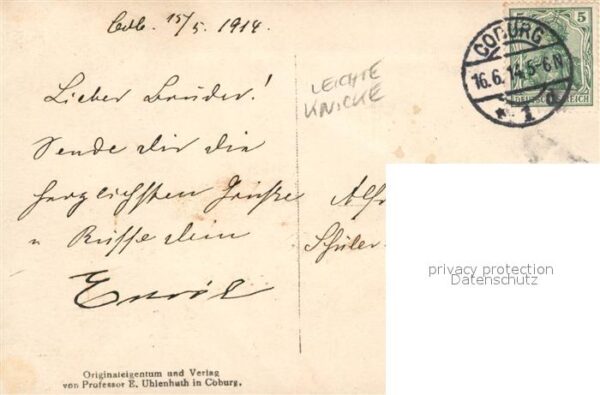 Cob. 15/5. 1914.
COBURG
16.6.14.5-6N
* 1 d
5 5
DEUTSCHES REICH
LEICHTE
KNICKE
Lieber Bruder!
Sende dir die
herzlichsten Grüße
u Küsse dein
Emil
Alfr
Schüler
privacy protection
Datenschutz
Originaleigentum und Verlag
von Professor E. Uhlenhuth in Coburg.